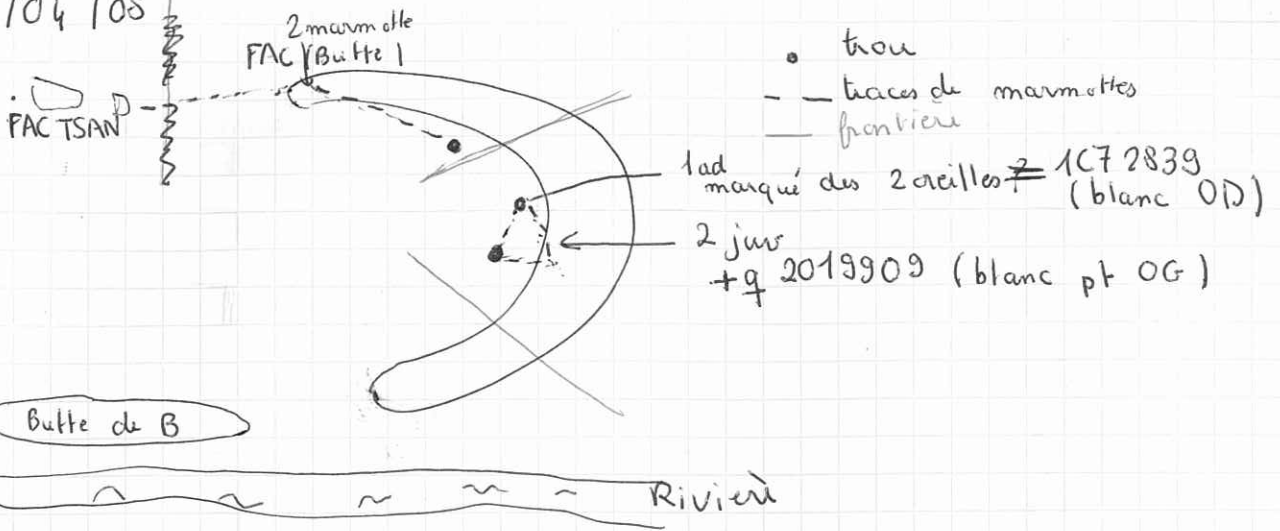 /04/08
2 marmotte
FAC Butte 1
FAC TSAN D
trou
traces de marmottes
frontière
1ad
marqué des 2 oreilles ? = 1C7 2839
(blanc OD)
2 juv
+ q 2019909 (blanc pt OG)
Butte de B
Rivierè